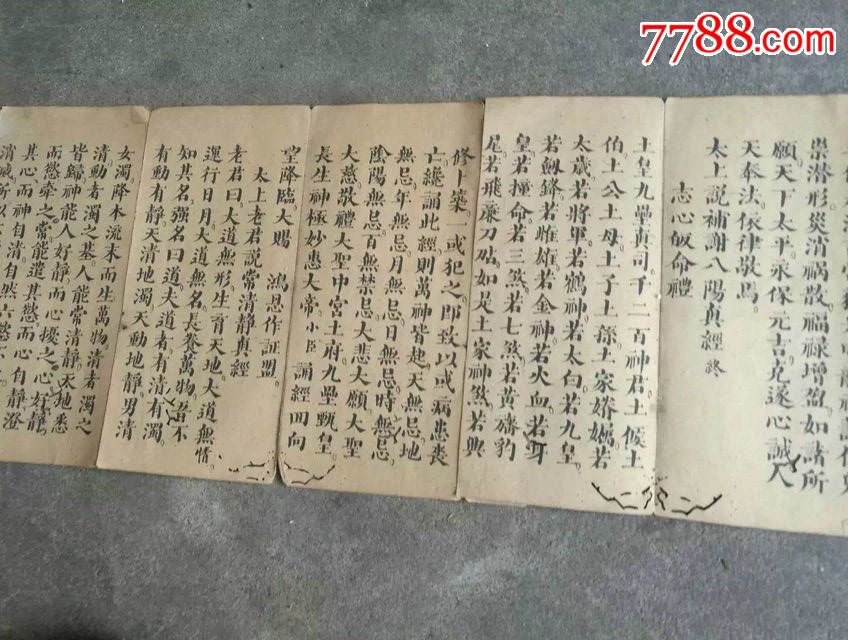 7788.com
祟潛形災消禍散福祿增盈如諸所
願天下太平永保元吉克遂心誠人
天奉法依律敬焉
太上説補謝八陽真經終
志心皈命禮
土皇九壘真司千二百神君土候土
伯土公土母土子土孫土家嬌嬌若
太歲若將軍若鶴神若太白若九皇
若劔鋒若雌雄若金神若火血若
皇若撞命若三煞若七煞若黄旛豹
尾若飛廉刀砧如是土家神煞若興
修卜築一或犯之即致以或病患丧
亡䋲誦此經則萬神皆起天無忌地
無忌年無忌月無忌日無忌時無忌
陰陽無忌百無禁忌大悲大願大聖
大慈敬禮大聖中宮土府九壘甄皇
長生神極妙惠大帝小臣誦經回向
望降臨大賜鴻恩作証盟
太上老君説常清靜真經
老君曰大道無形生育天地大道無情
運行日月大道無名長養萬物吾不
知其名强名曰道夫道者有清有濁
有動有靜天清地濁天動地靜男清
女濁降本流末而生萬物清者濁之
清動者濁之基人能常清靜天地悉
皆歸神能人好靜而心擾之心好靜
而慾牽之常能遣其慾而心自靜澄
其心而神自清自然六慾
消滅所以